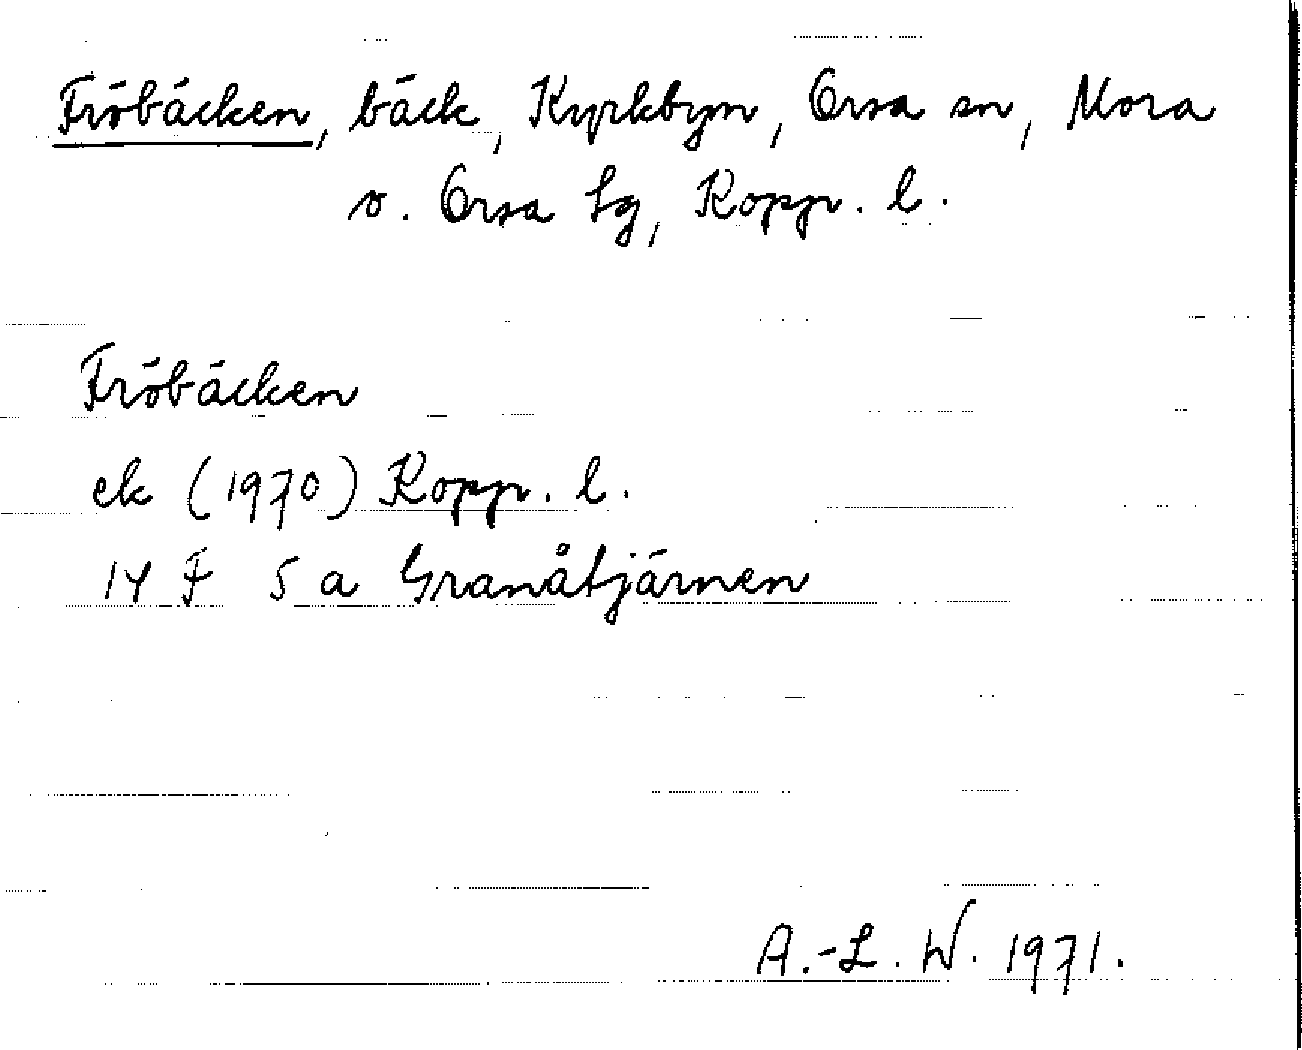 Fröbäcken, bäck, Kyrkbyn, Orsa sn, Mora
o. Orsa tg, Kopp. l.
Fröbäcken
ek (1970) Kopp. l.
14 F 5 a Granåtjärnen
A.-L. W. 1971.